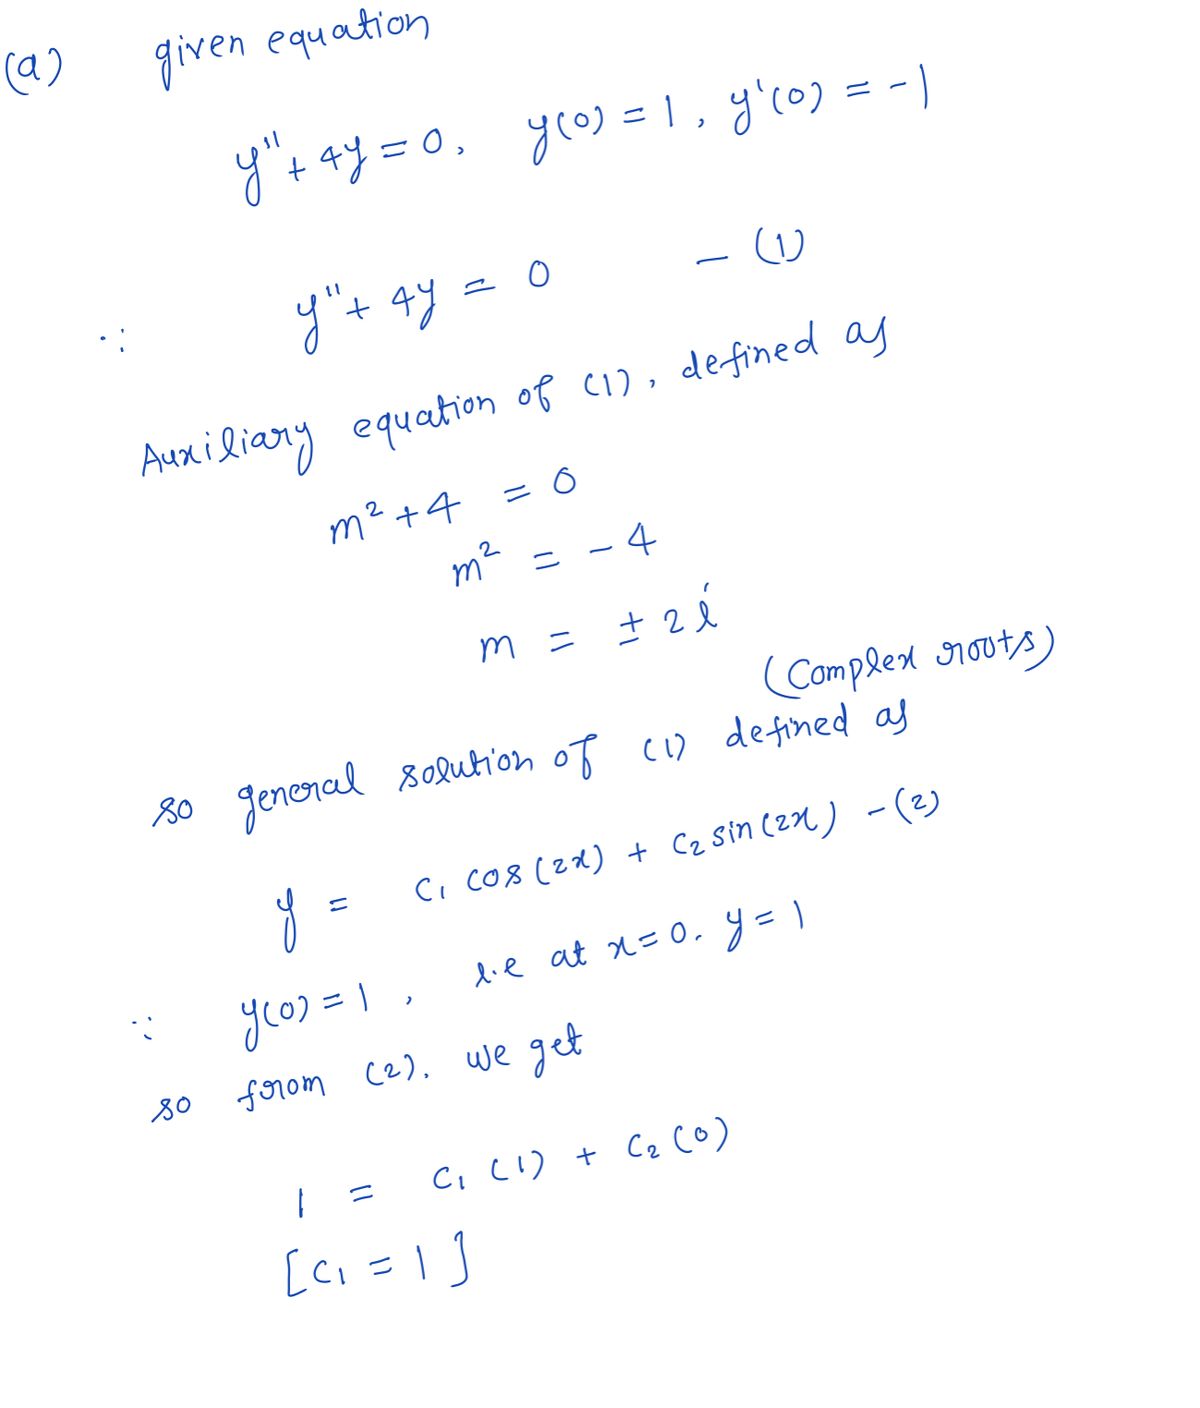 (a) given equation
y'' + 4y = 0, y(0) = 1, y'(0) = -1
∵ y'' + 4y = 0 - (1)
Auxiliary equation of (1), defined as
m² + 4 = 0
m² = -4
m = ± 2i
(Complex roots)
so general solution of (1) defined as
y = c₁ cos(2x) + c₂ sin(2x) - (2)
∵ y(0) = 1, i.e at x = 0. y = 1
so from (2). we get
1 = c₁ (1) + c₂ (0)
[c₁ = 1]